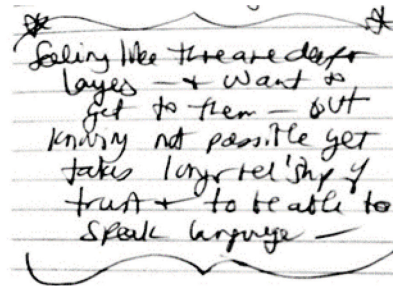 feeling like there are deeper
layes — + want to
get to them — but
knowing not possible yet
takes longer rel'ship of
trust + to be able to
speak language —